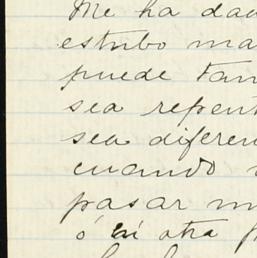 Me ha dad
estubo ma
puede tan
sea repent
sea diferen
cuando
pasar m
ó si otra